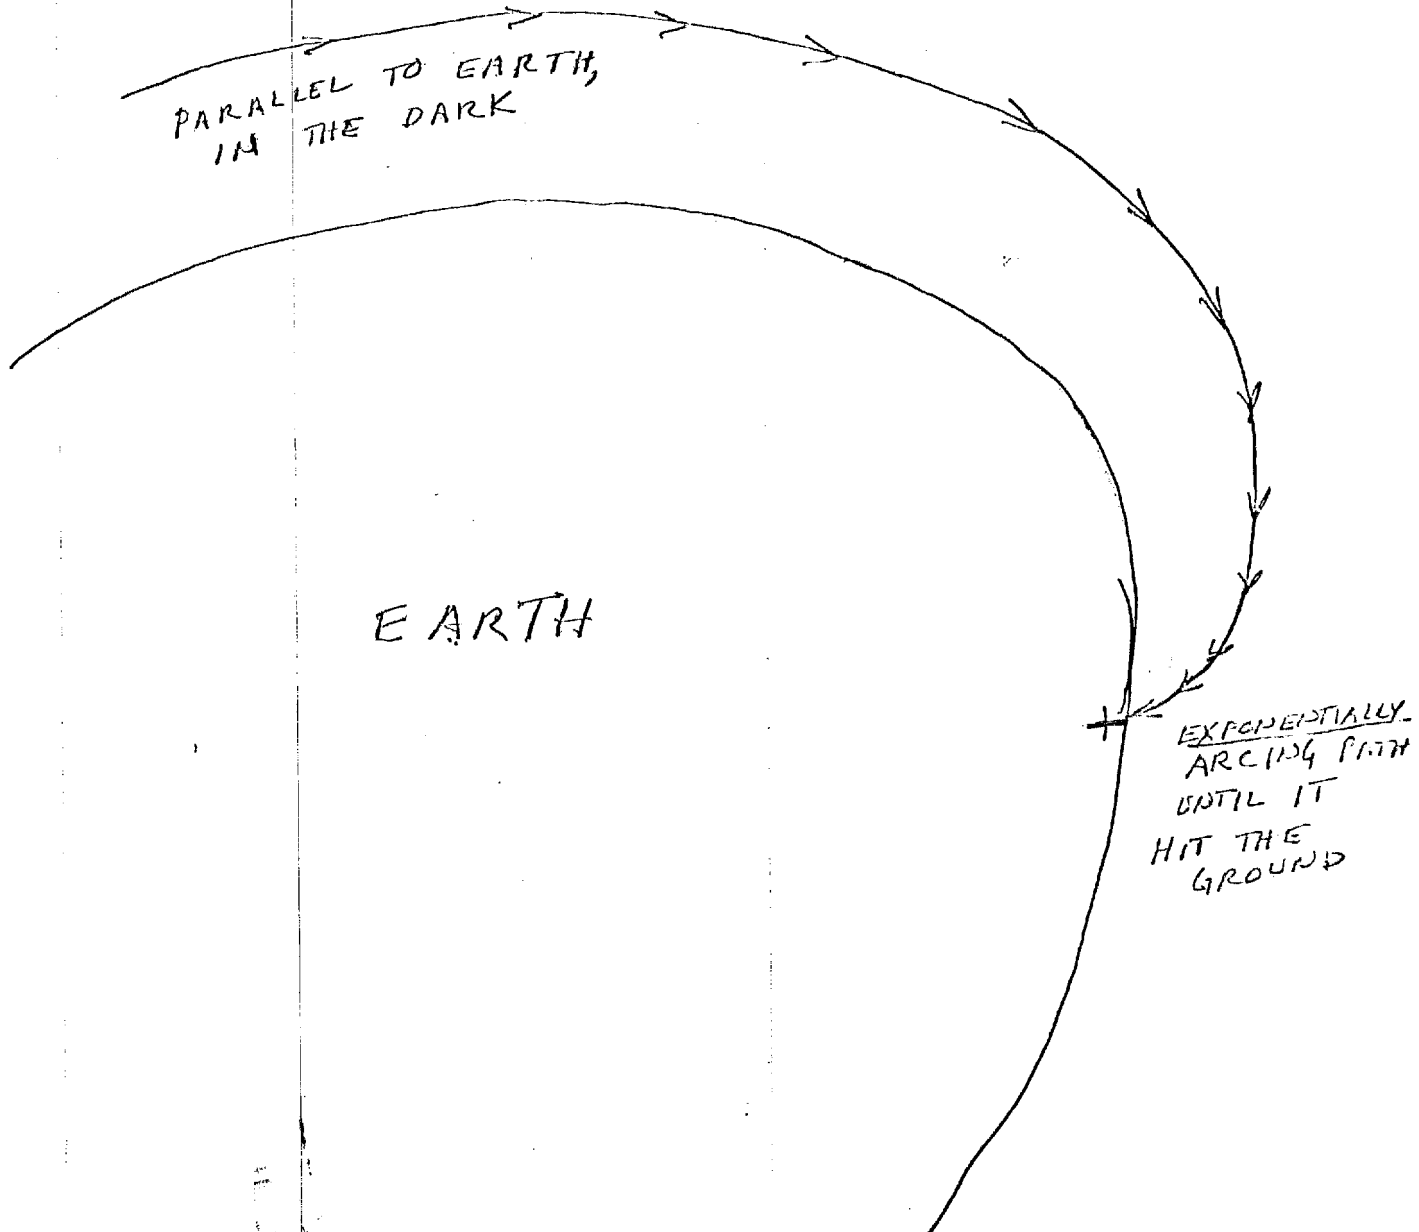 PARALLEL TO EARTH,
IN THE DARK
EARTH
EXPONENTIALLY
ARCING PATH
UNTIL IT
HIT THE
GROUND